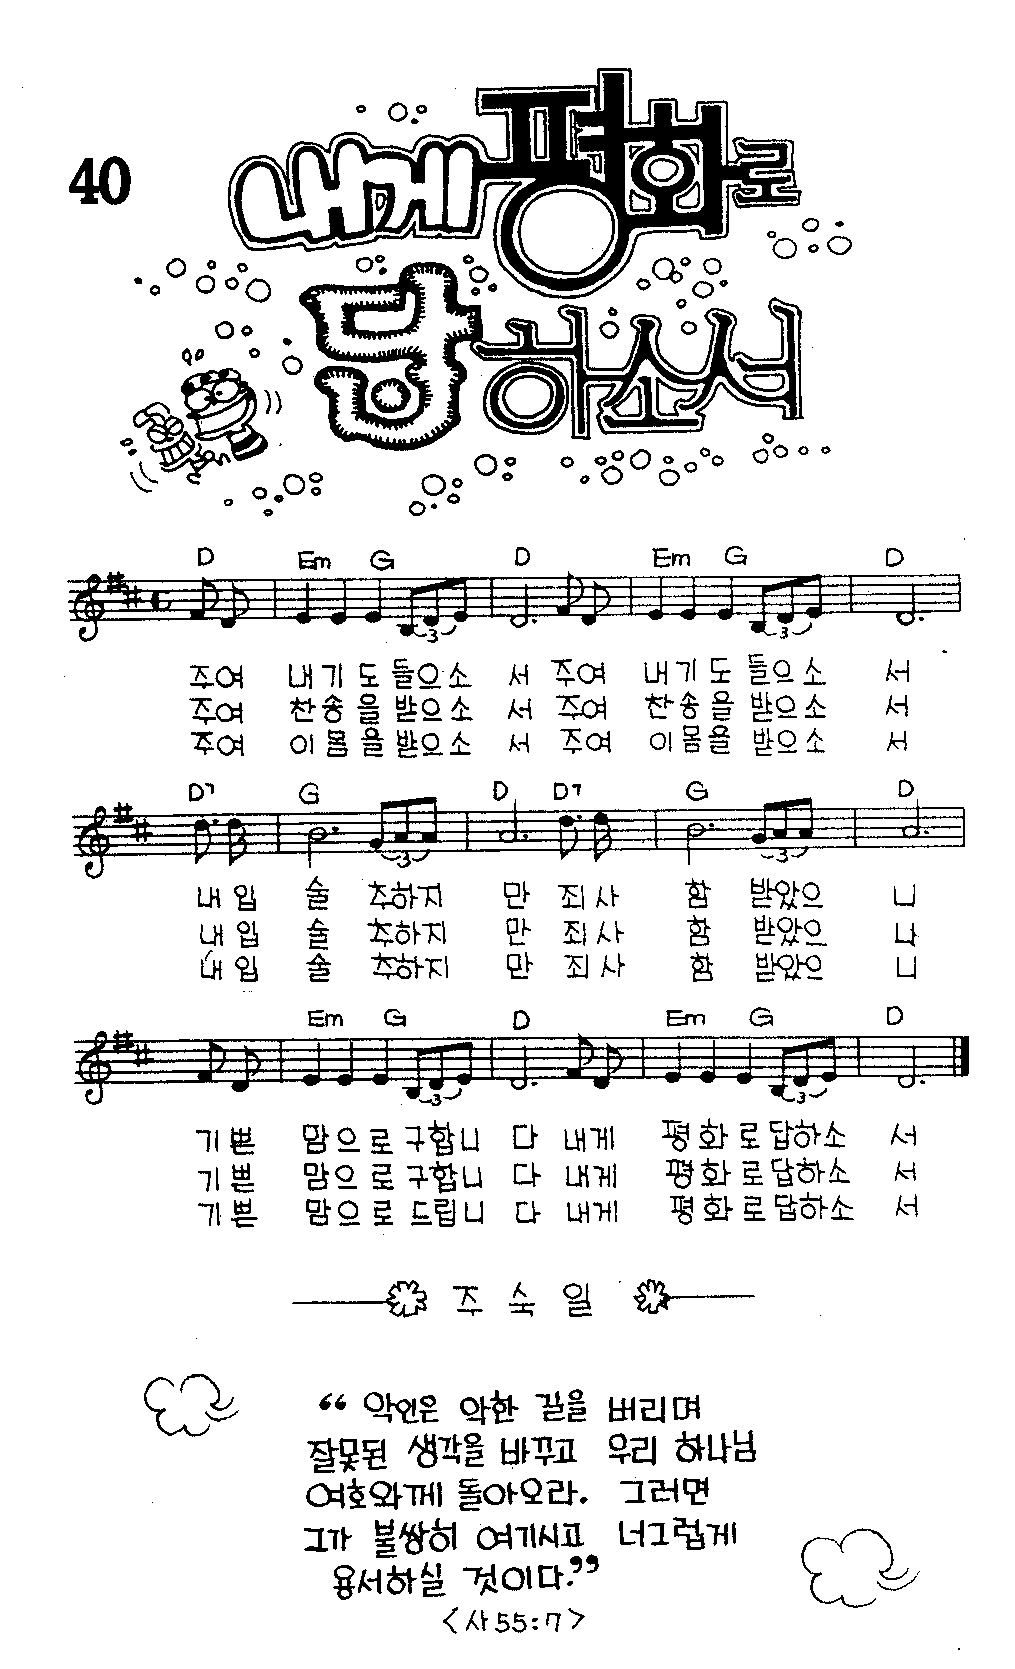 40
내게 평화로
답하소서
D Em G D Em G D
주여 내기도들으소 서 주여 내기도들으소 서
주여 찬송을받으소 서 주여 찬송을받으소 서
주여 이몸을받으소 서 주여 이몸을받으소 서
D7 G D D7 G D
내입 술 추하지 만 죄사 함 받았으 니
내입 술 추하지 만 죄사 함 받았으 나
내입 술 추하지 만 죄사 함 받았으 니
Em G D Em G D
기쁜 맘으로구합니 다 내게 평화로답하소 서
기쁜 맘으로구합니 다 내게 평화로답하소 서
기쁜 맘으로드립니 다 내게 평화로답하소 서
주 숙 일
“ 악인은 악한 길을 버리며
잘못된 생각을 바꾸고 우리 하나님
여호와께 돌아오라. 그러면
그가 불쌍히 여기시고 너그럽게
용서하실 것이다.”
<사 55:7>